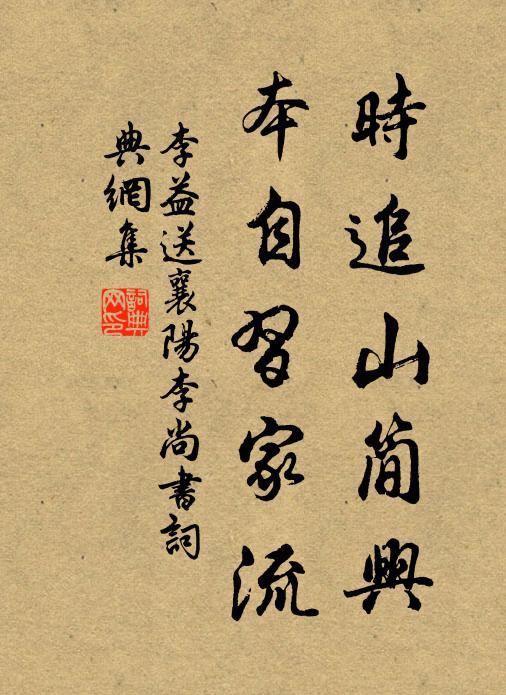 時追山简興
本自習家流
李益送襄陽李尚書詞
典網集
詞典
网印